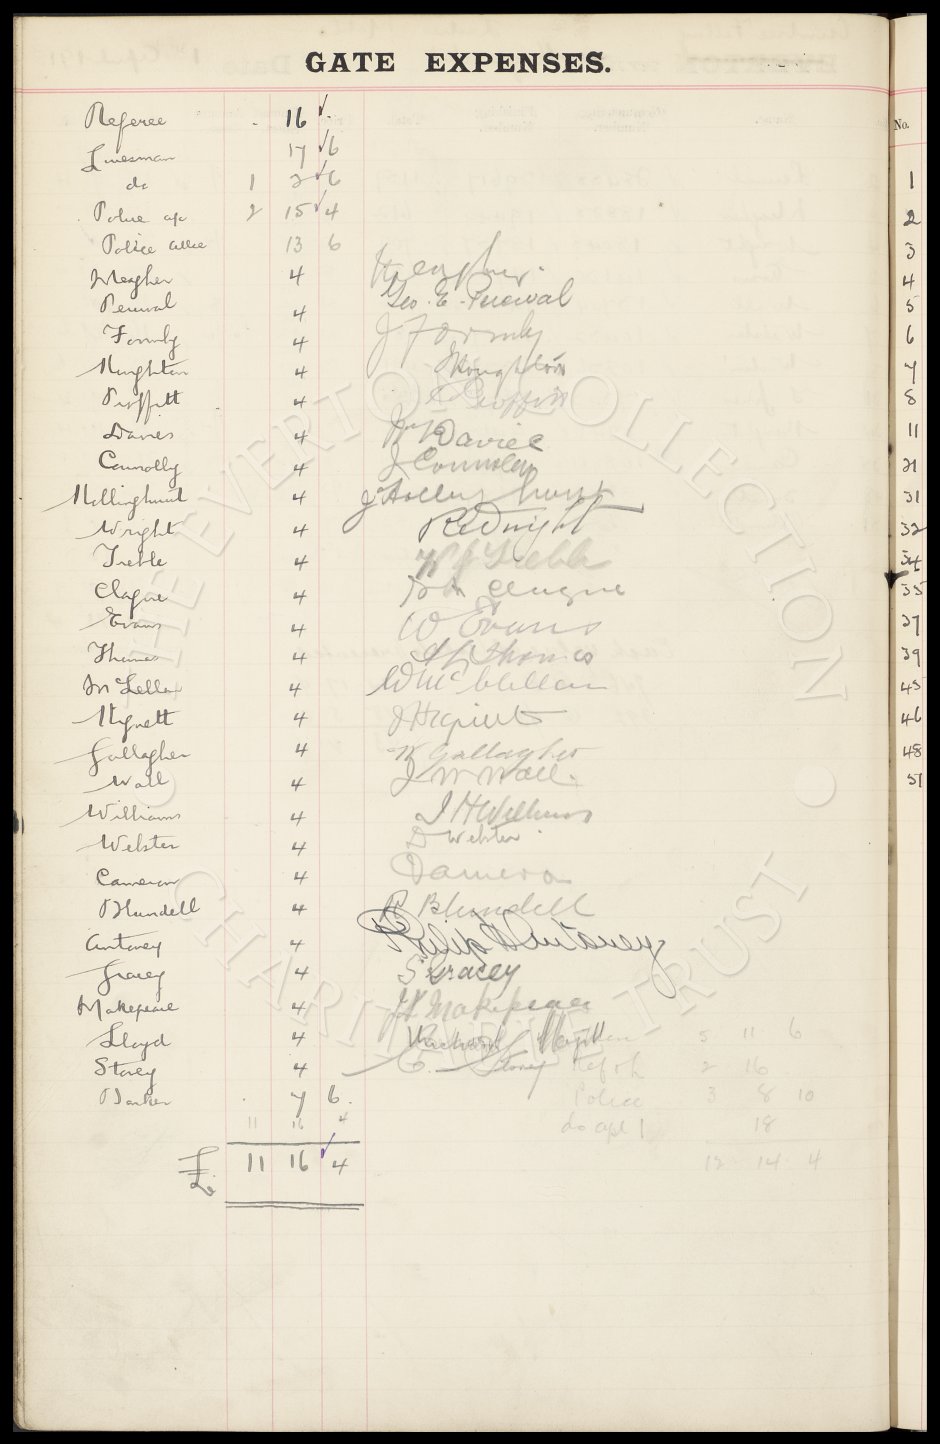 GATE EXPENSES.
Referee 16
Linesman 17 6
do 1 2 6
Police ap 2 15 4
Police 13 6
Meagher 4
Percival 4 Geo. E. Percival
Formby 4 J Formby
Houghton 4 Houghton
Proffitt 4 Proffitt
Davies 4 Davies
Connolly 4 J Connolly
Hollinghurst 4 J Hollinghurst
Wright 4 R Wright
Treble 4 Treble
Clague 4 Clague
Evans 4 W Evans
Thomas 4 Thomas
McLellan 4 W McClellan
Hignett 4 J Hignett
Gallagher 4 W Gallagher
Wall 4 J W Wall
Williams 4 J H Williams
Webster 4 D Webster
Cameron 4 Cameron
Blundell 4 R Blundell
Antoney 4 Philip H Antoney
Gracey 4 S Gracey
Makepeace 4 Makepeace
Lloyd 4 5 11 6
Storey 4 Storey 2 16
Barker 7 6 Police 3 8 10
11 16 4 do apl 1 18
£ 11 16 4 12 14 4
No.
1
2
3
4
5
6
7
8
11
21
31
32
34
35
37
39
45
46
48
51
THE EVERTON COLLECTION
CHARITABLE TRUST